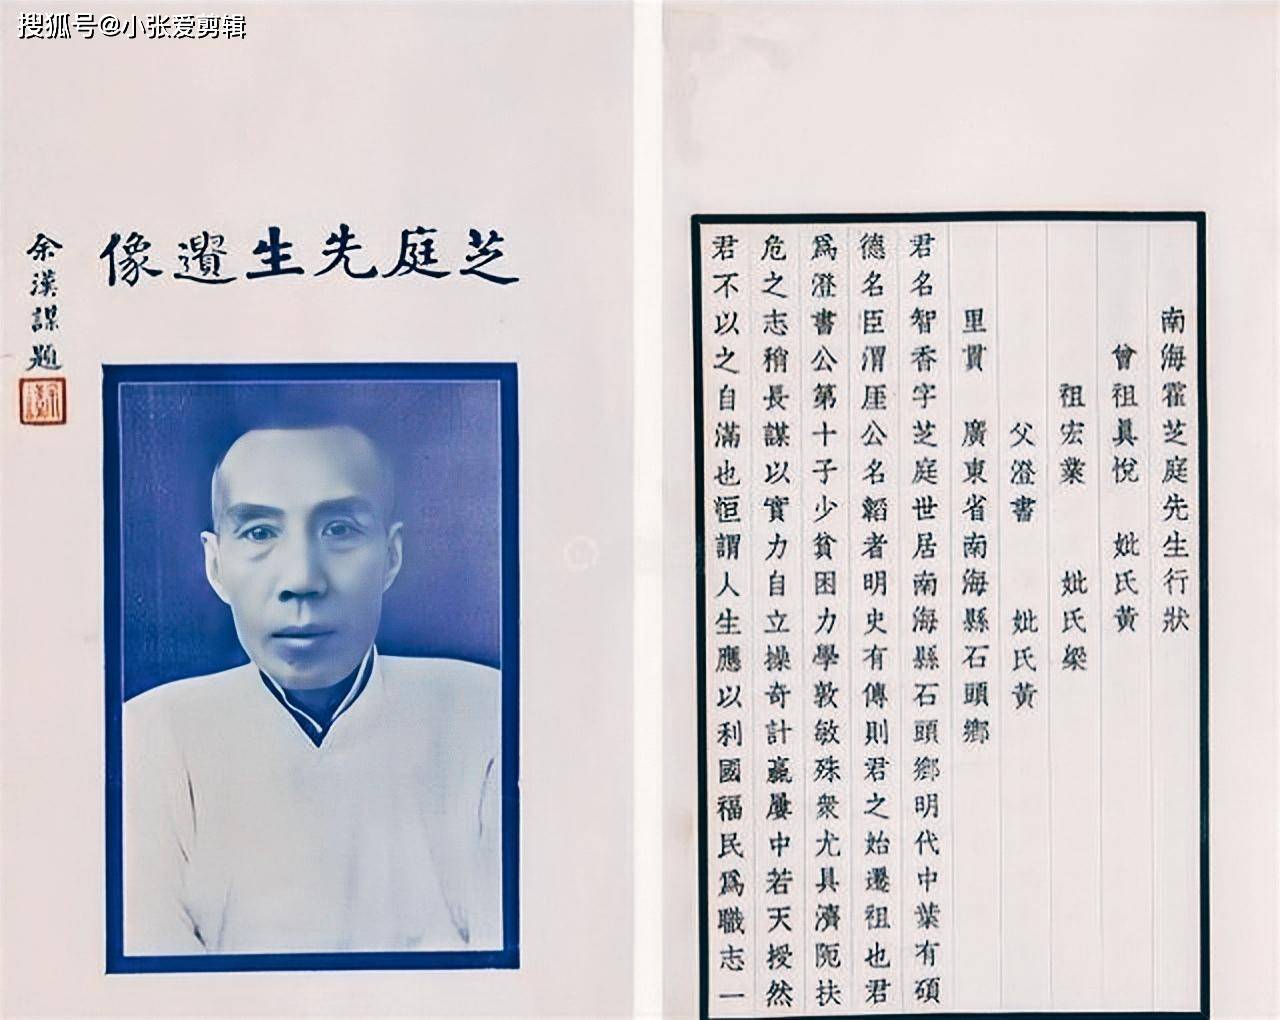 搜狐号@小张爱剪辑
芝庭先生遺像
余漢謀題
南海霍芝庭先生行狀
曾祖眞悅 妣氏黃
祖宏業 妣氏梁
父澄書 妣氏黃
里貫 廣東省南海縣石頭鄉
君名智香字芝庭世居南海縣石頭鄉明代中葉有碩
德名臣渭厓公名韜者明史有傳則君之始遷祖也君
爲澄書公第十子少貧困力學敦敏殊衆尤具濟阨扶
危之志稍長謀以實力自立操奇計贏屢中若天授然
君不以之自滿也恒謂人生應以利國福民爲職志一